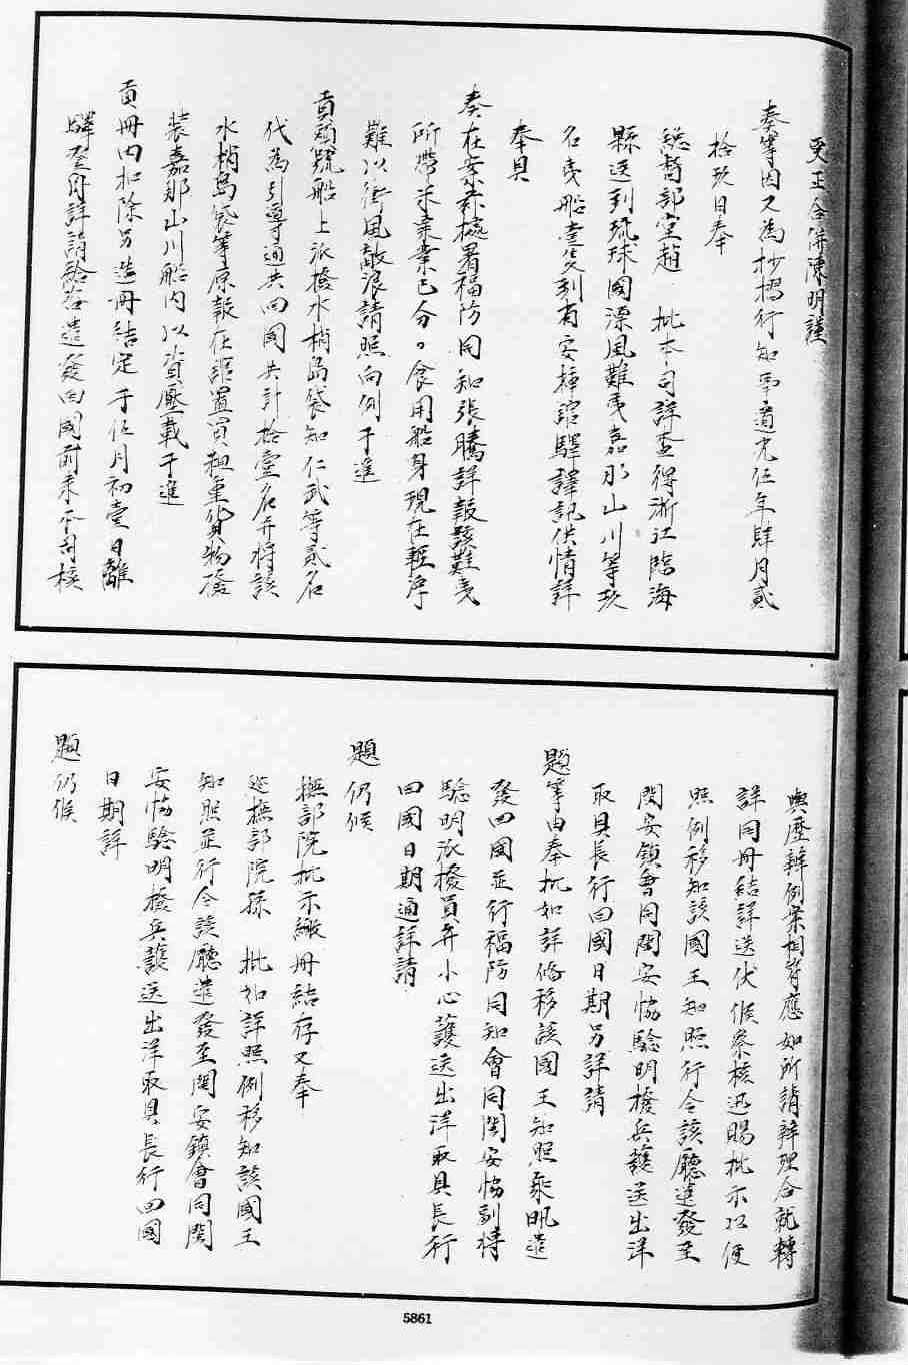 更正合併陳明謹
奏等因又為抄摺行知事道光伍年肆月貳
拾玖日奉
總督部堂趙 批本司詳查得浙江臨海
縣送到琉球國漂風難夷嘉那山川等玖
名夷船壹隻到省安插館驛譯訊供情詳
奉具
奏在案茲據署福防同知張騰詳報該難夷
所帶米
食用船身現在輕浮
難以衝風敵浪請照向例于進
貢頭號船上派撥水梢島袋知仁武等貳名
代為引導通共回國共計拾壹名并將該
水梢島袋等原報在館置買粗重貨物
裝嘉那山川船內以資壓載于進
貢冊內扣除另造冊結定于伍月初壹日離
驛登舟詳請給咨遣發回國前來本司核
與歷辦例案相符應如所請辦理合就轉
詳同冊結詳送伏候察核迅賜批示以便
照例移知該國王知照行令該廳遣發至
閩安鎮會同閩安協驗明撥兵護送出洋
取具長行回國日期另詳請
題等由奉批如詳備移該國王知照乘帆遣
發回國並行福防同知會同閩安協副將
驗明派撥員弁小心護送出洋取具長行
回國日期通詳請
題仍候
撫部院批示繳冊結存又奉
巡撫部院孫 批如詳照例移知該國王
知照並行令該廳遣發至閩安鎮會同閩
安協驗明撥兵護送出洋取具長行回國
日期詳
題仍候
5861